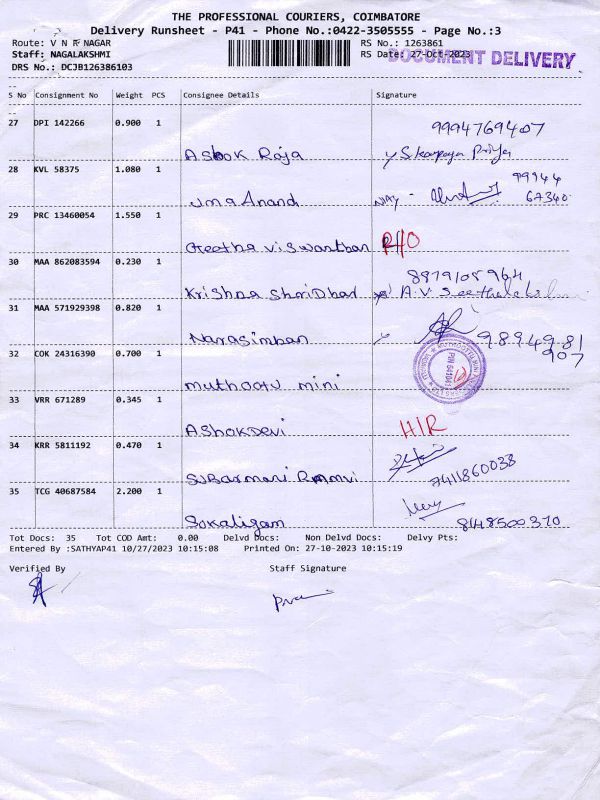 THE PROFESSIONAL COURIERS, COIMBATORE
Delivery Runsheet - P41 - Phone No.:0422-3505555 - Page No.:3
Route: V N R NAGAR
RS No.: 1263861
Staff: NAGALAKSHMI
RS Date: 27-Oct-2023
DOCUMENT DELIVERY
DRS No.: DCJB126386103
S No Consignment No Weight PCS Consignee Details Signature
27 DPI 142266 0.900 1
9994769407
Ashok Roja
28 KVL 58375 1.080 1
99944
67340
Uma Anand
29 PRC 13460054 1.550 1
Geetha viswanthan
30 MAA 862083594 0.230 1
8879108964
Krishna Shridhar
31 MAA 571929398 0.820 1
Narasimhan
9894981
907
32 COK 24316390 0.700 1
muthootu mini
33 VRR 671289 0.345 1
AShokDevi H/R
34 KRR 5811192 0.470 1
7411860038
35 TCG 40687584 2.200 1
Sokaligam
8148500370
Tot Docs: 35 Tot COD Amt: 0.00 Delvd Docs: Non Delvd Docs: Delvy Pts:
Entered By :SATHYAP41 10/27/2023 10:15:08 Printed On: 27-10-2023 10:15:19
Verified By Staff Signature